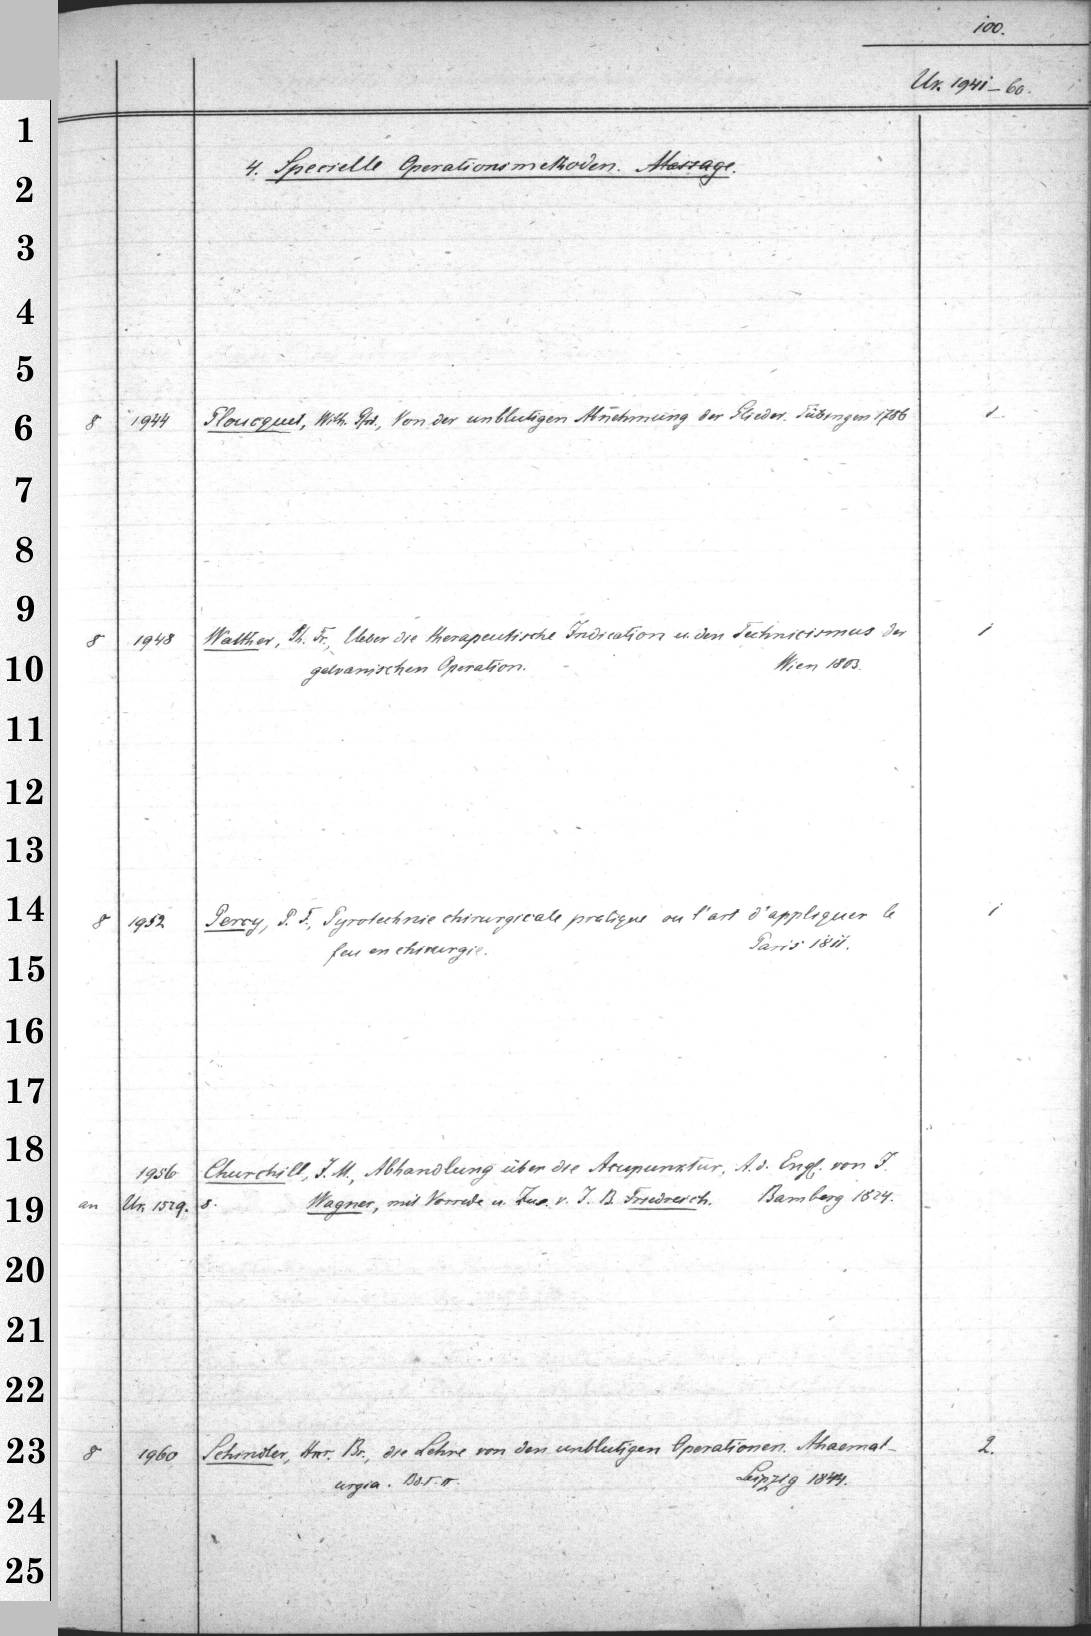 100.
Nr. 1941-60.
4. Specielle Operationsmethoden. Massage.
8 1944 Ploucquet, Wilh. Gfrd., Von der unblutigen Abnehmung der Glieder. Tübingen 1786 1.
8 1948 Walther, Ph. Fr., Ueber die therapeutische Indication u. den Technicismus der 1
galvanischen Operation. Wien 1803.
8 1952 Percy, P. F., Pyrotechnie chirurgicale pratique ou l'art d'appliquer le 1
feu en chirurgie. Paris 1811.
1956 Churchill, J. M., Abhandlung über die Acupunktur, A. d. Engl. von J.
an Nr. 1529. 8. Wagner, mit Vorrede u. Zus. v. J. B. Friedreich. Bamberg 1824.
8 1960 Schindler, Hnr. Br., die Lehre von den unblutigen Operationen. Ahaemat- 2.
urgia. Bd. I. II. Leipzig 1844.
1
2
3
4
5
6
7
8
9
10
11
12
13
14
15
16
17
18
19
20
21
22
23
24
25